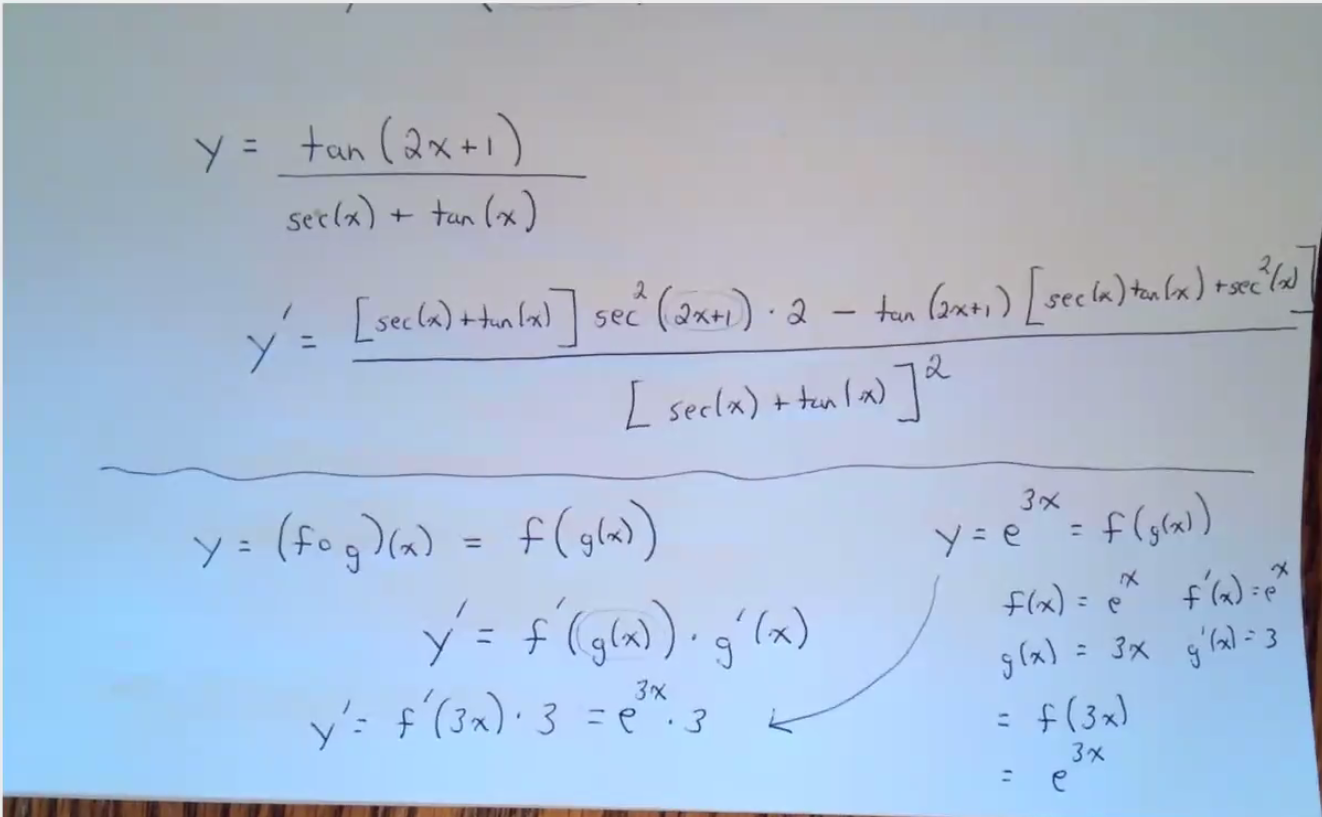 y = tan(2x+1)
sec(x) + tan(x)
y' = [sec(x)+tan(x)] sec²(2x+1) · 2 − tan(2x+1) [sec(x)tan(x)+sec²(x)]
[sec(x) + tan(x)]²
y = (f∘g)(x) = f(g(x))
y' = f'(g(x)) · g'(x)
y' = f'(3x) · 3 = e^{3x} · 3
y = e^{3x} = f(g(x))
f(x) = e^x f'(x) = e^x
g(x) = 3x g'(x) = 3
= f(3x)
= e^{3x}